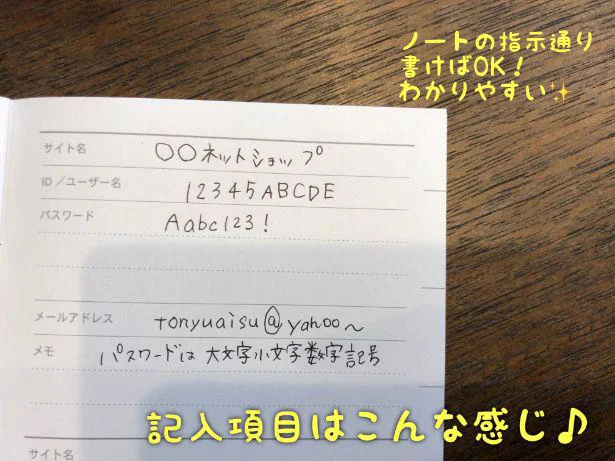 ノートの指示通り
書けばOK!
わかりやすい✨
サイト名 〇〇ネットショップ
ID/ユーザー名 12345ABCDE
パスワード Aabc123!
メールアドレス tonyuaisu@yahoo~
メモ パスワードは大文字小文字数字記号
記入項目はこんな感じ♪
サイト名